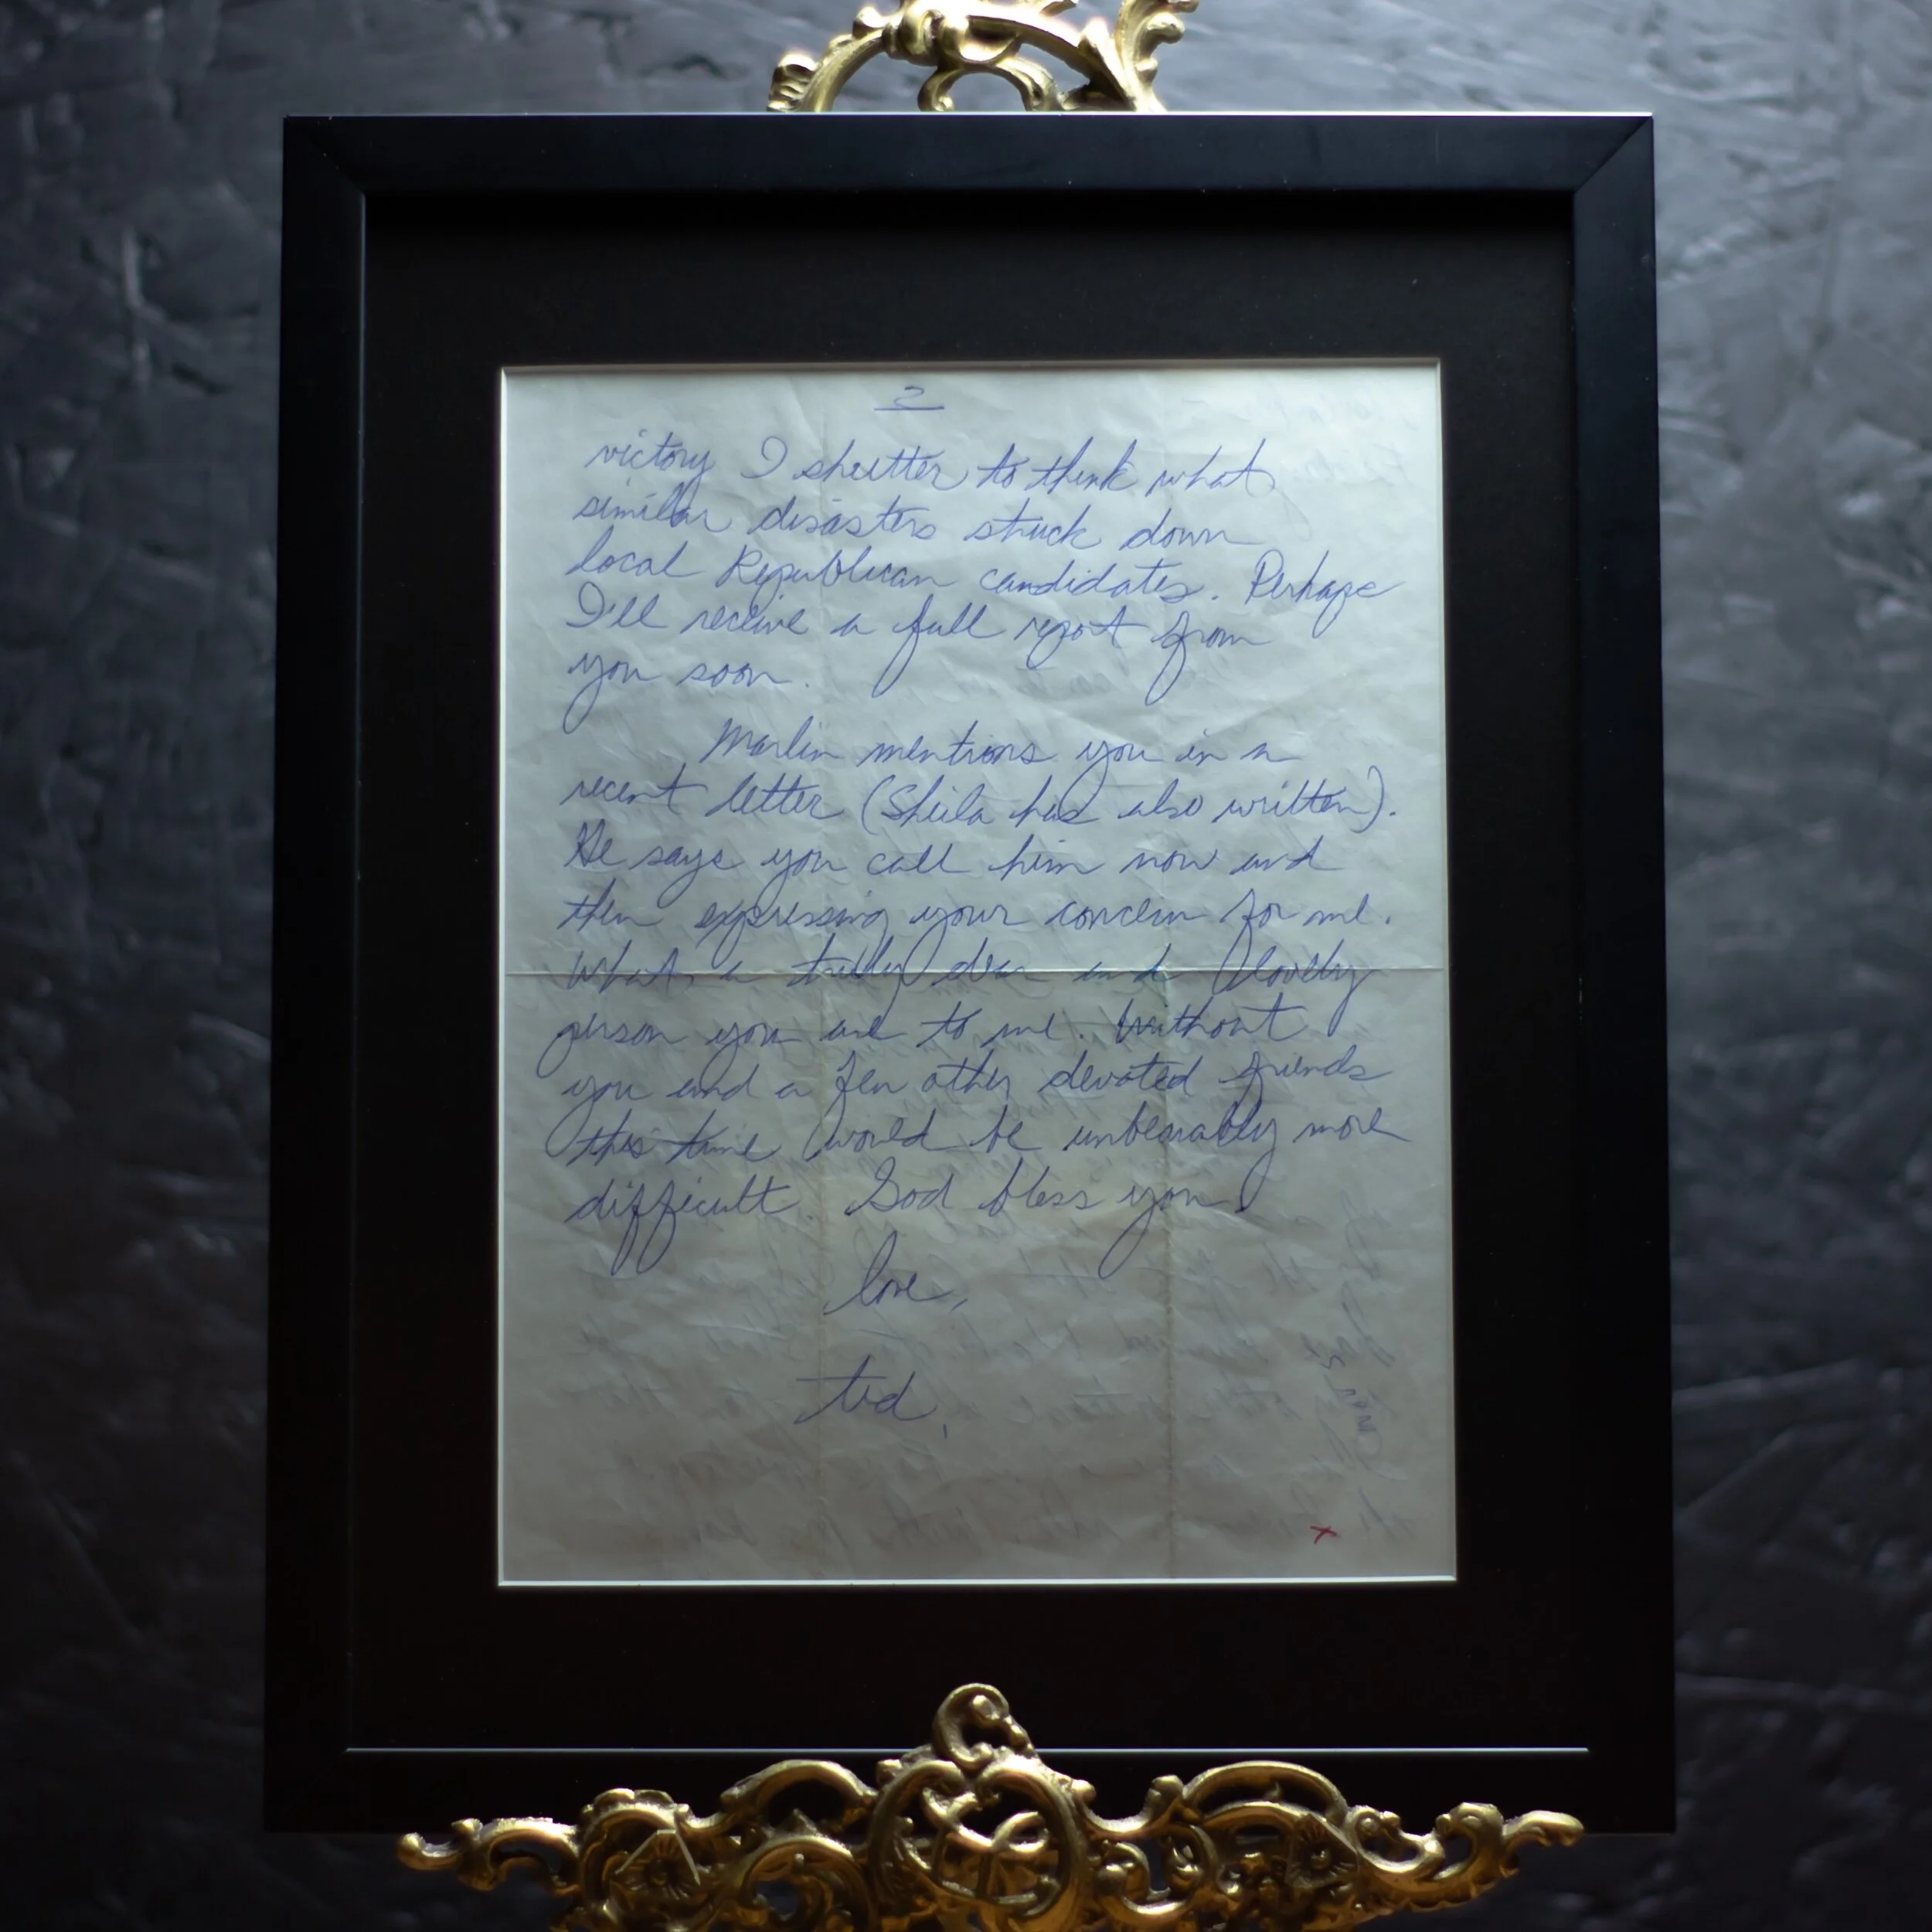 2
victory I shutter to think what
similar disasters stuck down
local Republican candidates. Perhaps
I'll receive a full repot from
you soon.
Marlin mentions you in a
recent letter (Sheila has also written).
He says you call him now and
then expressing your concern for me.
What a truly dear and lovely
person you are to me. Without
you and a few other devoted friends
this time would be unbearably more
difficult. God bless you
love,
ted.
x